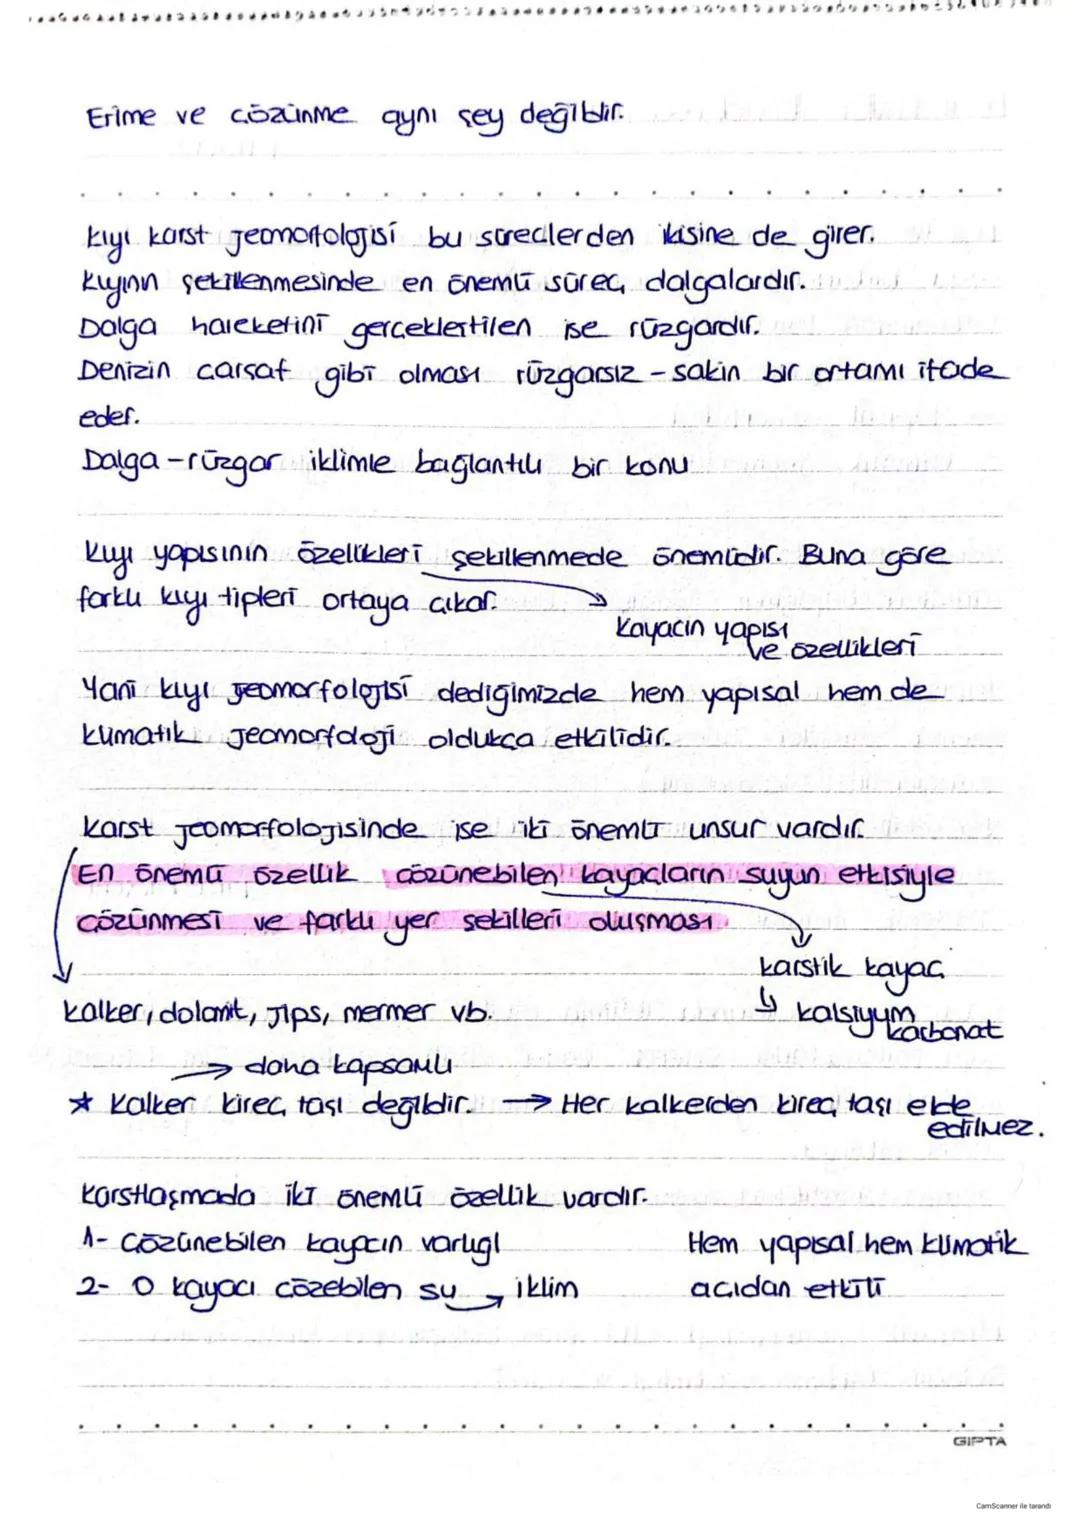 Erime ve çözünme aynı şey değildir.
Kıyı karst jeomorfolojisi bu süreçlerden ikisine de girer.
Kıyının şekillenmesinde en önemli süreç dalgalardır.
Dalga hareketini gerçekleştirilen ise rüzgardır.
Denizin çarşaf gibi olması rüzgarsız - sakin bir ortamı ifade
eder.
Dalga - rüzgar iklimle bağlantılı bir konu
Kıyı yapısının özellikleri şekillenmede önemlidir. Buna göre
farklı kıyı tipleri ortaya çıkar.
Kayacın yapısı
ve özellikleri
Yani kıyı jeomorfolojisi dediğimizde hem yapısal hem de
klimatik jeomorfoloji oldukça etkilidir.
Karst jeomorfolojisinde ise iki önemli unsur vardır.
En önemli özellik çözünebilen kayaçların suyun etkisiyle
çözünmesi ve farklı yer şekilleri oluşması
karstik kayaç
↳ kalsiyum
karbonat
kalker, dolomit, jips, mermer vb.
→ daha kapsamlı
* Kalker kireç taşı değildir. → Her kalkerden kireç taşı elde
edilmez.
Karstlaşmada iki önemli özellik vardır.
1- Çözünebilen kayacın varlığı
Hem yapısal hem klimatik
2- O kayacı çözebilen su → iklim
açıdan etkili
GIPTA
CamScanner ile tarandı